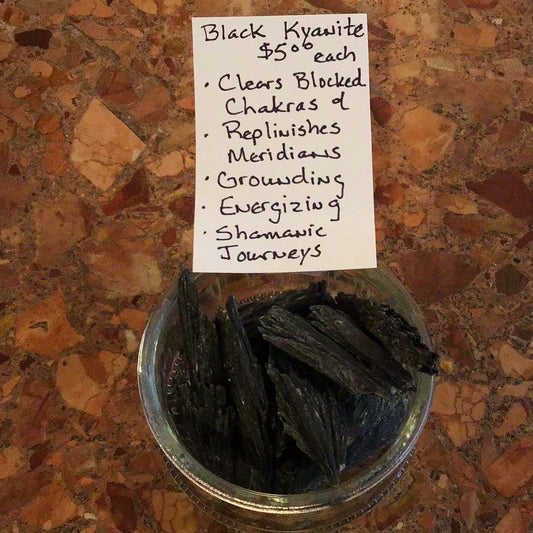 Black Kyanite
$5⁰⁰ each
• Clears Blocked
Chakras &
• Replinishes
Meridians
• Grounding
• Energizing
• Shamanic
Journeys